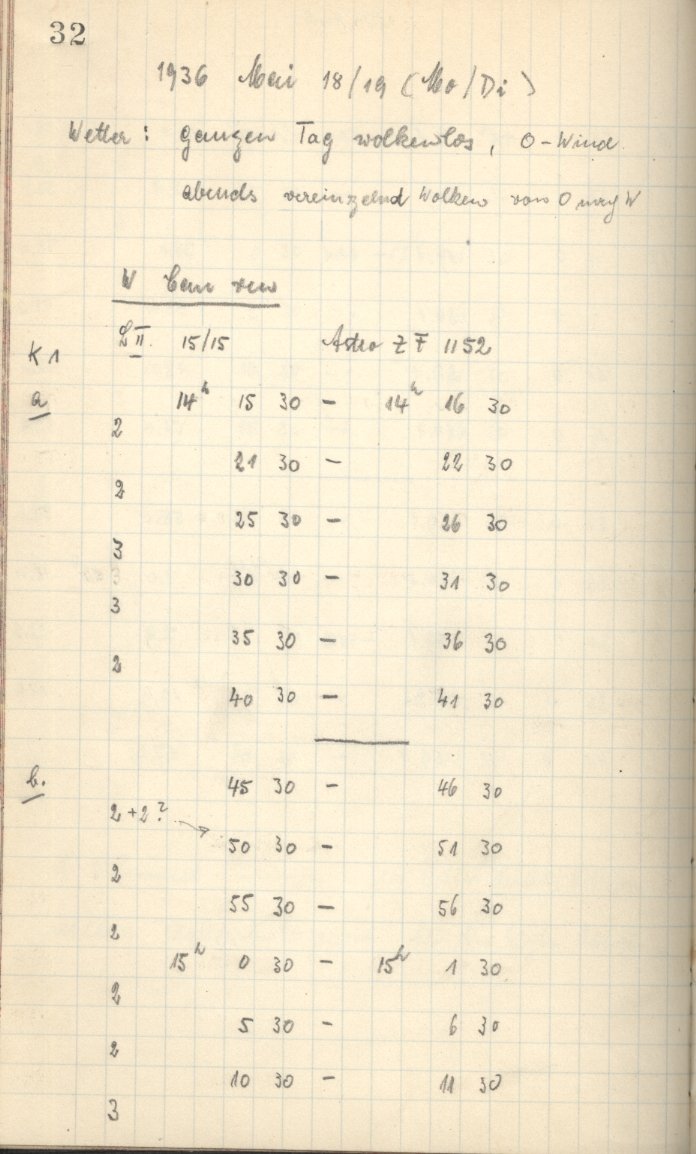 32
1936 Mai 18/19 (Mo/Di)
Wetter: ganzen Tag wolkenlos, O-Wind
abends vereinzelnd Wolken von O nach W
W Cam ven
K1
L II. 15/15 Astro Z F 1152
a
14h 15 30 - 14h 16 30
2
21 30 - 22 30
2
25 30 - 26 30
3
30 30 - 31 30
3
35 30 - 36 30
2
40 30 - 41 30
b.
45 30 - 46 30
2 + 2?
50 30 - 51 30
2
55 30 - 56 30
2
15h 0 30 - 15h 1 30
2
5 30 - 6 30
2
10 30 - 11 30
3